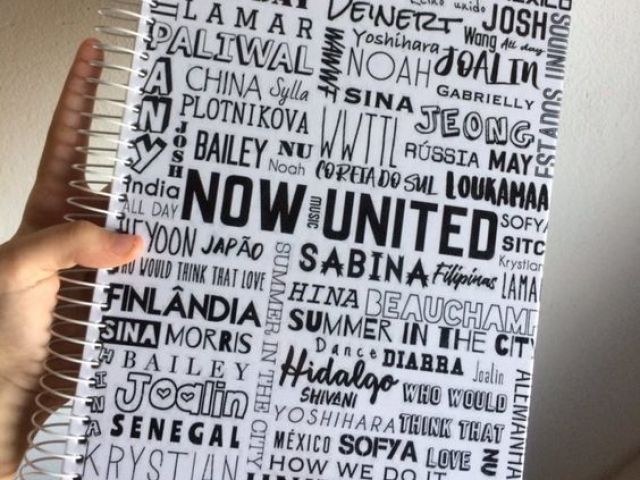 LAMAR
DEINERT
Reino unido
MÉXICO
JOSH
PALIWAL
ANY
WANNT
Yoshihara
Wang
All day
NOAH
JOALIN
CHINA
Sylla
SINA
GABRIELLY
PLOTNIKOVA
WWTTL
JEONG
ESTADOS UNIDOS
JOSH
BAILEY
NU
Noah
COREIA DO SUL
RÚSSIA
MAY
LOUKAMAA
India
ALL DAY
NOW
music
UNITED
SOFYA
SITC
HEYOON
JAPÃO
SABINA
Filipinas
Krystian
LAMAR
WHO WOULD THINK THAT LOVE
SUMMER IN THE CITY
FINLÂNDIA
HINA
BEAUCHAMP
SUMMER IN THE CITY
SINA
MORRIS
Dance
DIARRA
Joalin
HINA
BAILEY
Hidalgo
SHIVANI
WHO WOULD
ALEMANHA
Joalin
YOSHIHARA
THINK THAT
SENEGAL
MÉXICO
SOFYA
LOVE
NU
KRYSTIAN
HOW WE DO IT